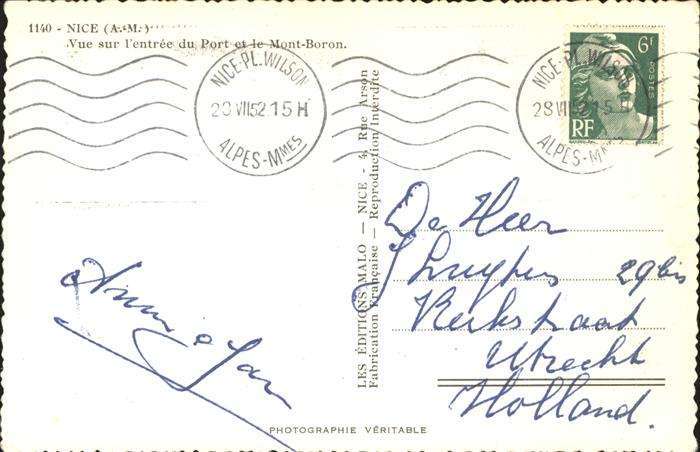 1140 - NICE (A.-M.)
Vue sur l'entrée du Port et le Mont-Boron.
NICE-PL. WILSON
28 VII 52 15 H
ALPES-MMES
NICE-PL. WILSON
28 VII 52 15 H
ALPES-MMES
6F
POSTES
RF
LES EDITIONS MALO — NICE - 4, Rue Arson
Fabrication Française — Reproduction Interdite
De Heer
29 bis
Kerkstraat
Utrecht
Holland.
PHOTOGRAPHIE VÉRITABLE